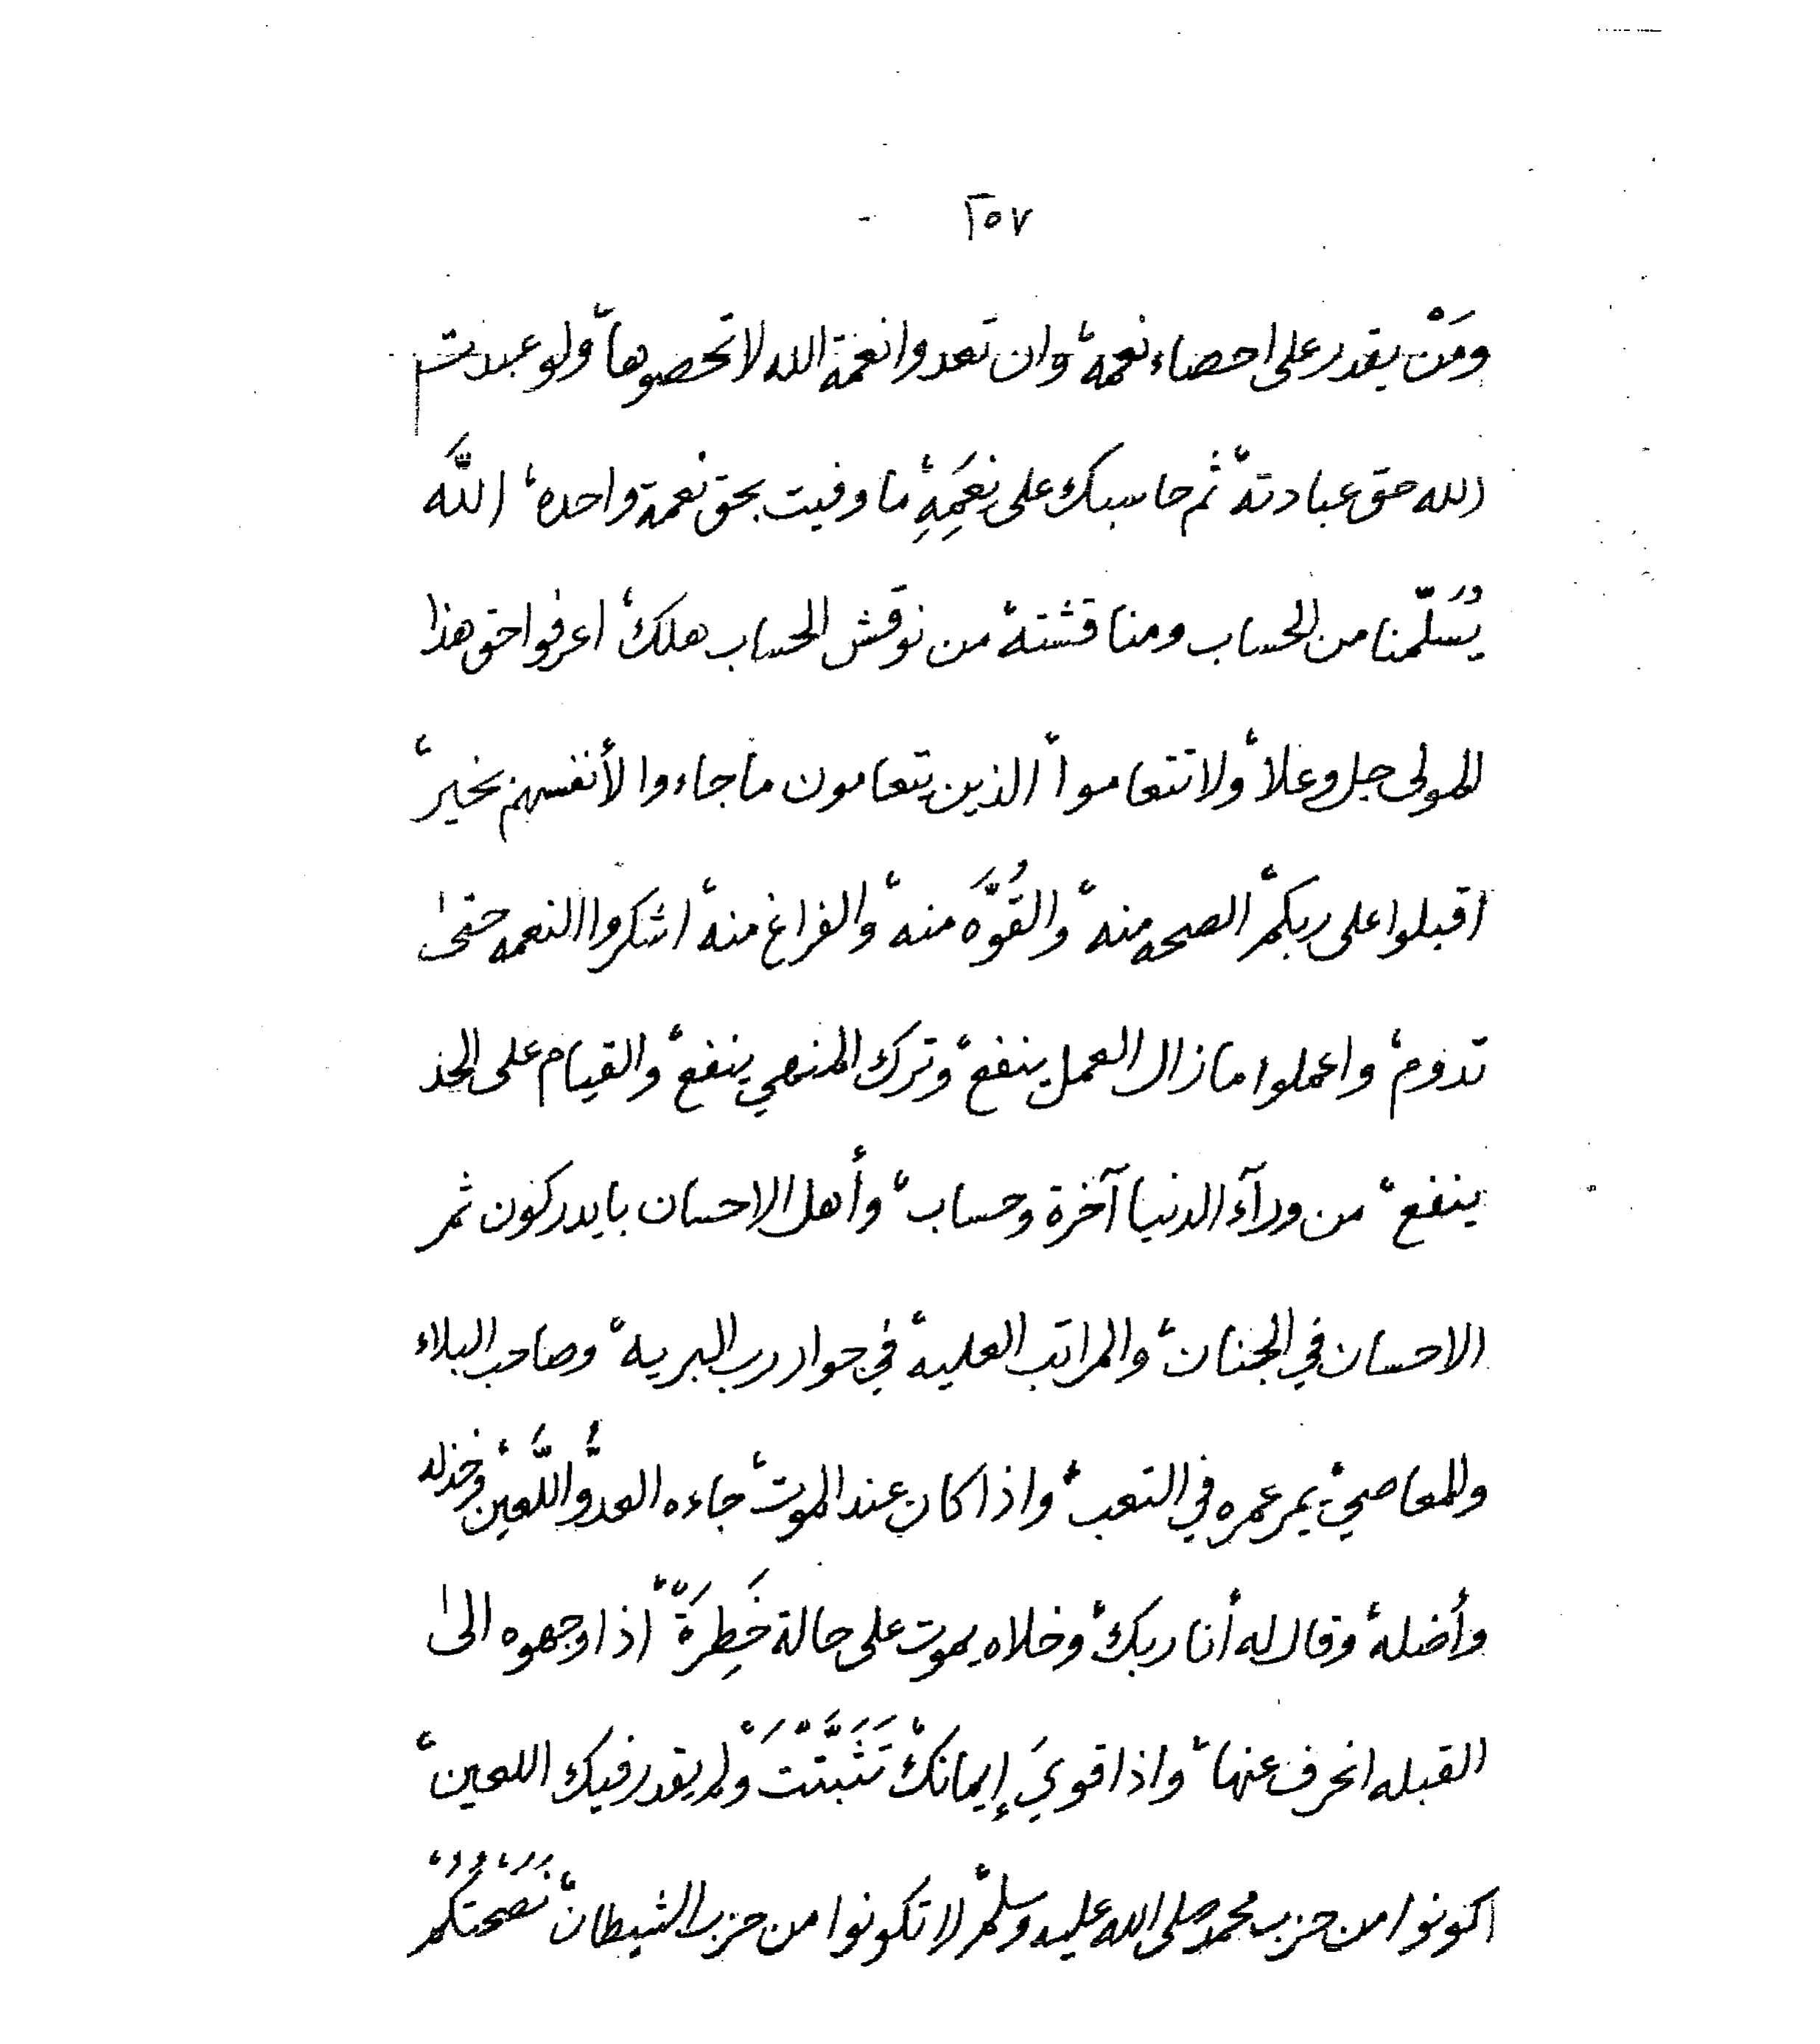 ٢٥٧
ومَنْ يقدر على احصاء نعمه، وان تعدوا نعمة الله لا تحصوها، ولو عبدت
الله حق عبادته، ثم حاسبك على نِعَمِهِ، ما وفيت بحق نعمة واحده، اللَّه
يُسَلّمنا من الحساب ومناقشته، من نوقش الحساب هلك، اعرفوا حق هذا
المولى جل وعلا، ولا تتعاموا، الذين يتعامون ما جاءوا لأنفسهم بخير،
اقبلوا على ربكم، الصحه منه، والقُوَّه منه، والفراغ منه، اشكروا النعمه حتى
تدوم، واعملوا ما زال العمل ينفع، وترك المنهي ينفع، والقيام على الحد
ينفع، من ورآء الدنيا آخرة وحساب، وأهل الاحسان بايدركون ثمر
الاحسان في الجنان، والمراتب العليه، في جوار رب البريه، وصاحب البلاء
والمعاصي، يمر عمره في التعب، واذا كان عند الموت، جاءه العدوُّ اللَّعين، وخذله
وأضله، وقال له أنا ربك، وخلاه يموت على حالة خَطِرَةٍ، اذا وجهوه الى
القبله انحرف عنها، واذا قويَ إيمانك، تَثَبَّتْتَ، ولم يقدر فيك اللعين،
اكونوا من حزب محمد صلى الله عليه وسلم، لا تكونوا من حزب الشيطان، نَصَحْتُكُمْ،